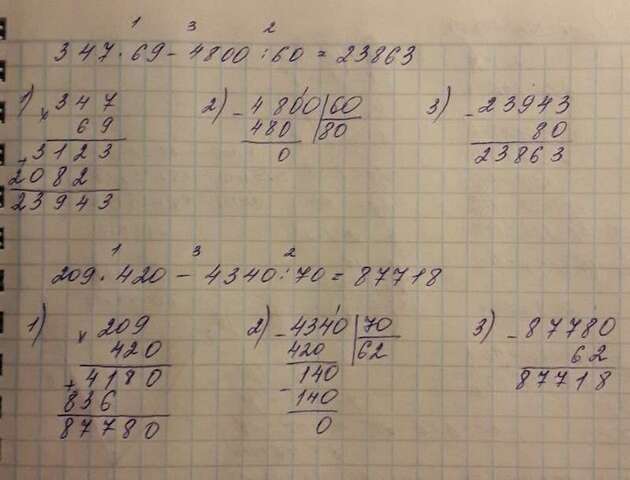 1 3 2
347·69-4800:60=23863
1) 347 2) -4800|60 3) -23943
× 69 480 |80 80
+3123 0 23863
2082
23943
1 3 2
209·420-4340:70=87718
1) ×209 2) -4340|70 3) -87780
420 420 |62 62
+4180 -140 87718
836 140
87780 0